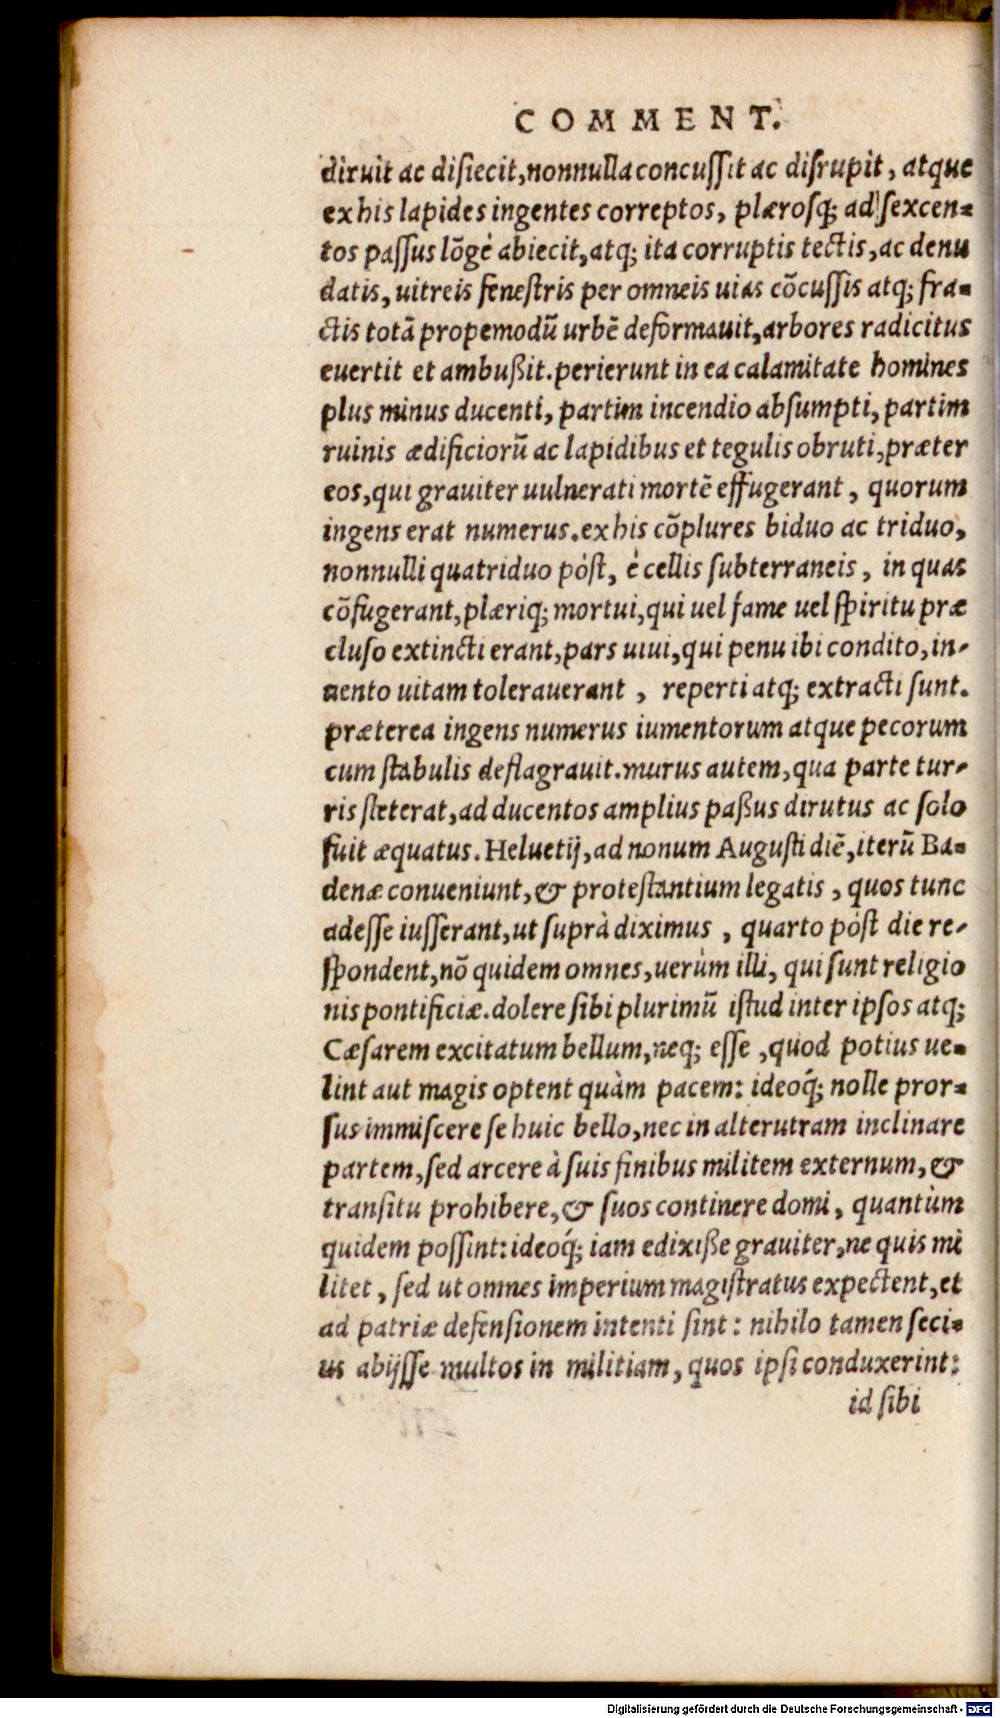 COMMENT.
diruit ac disiecit, nonnulla concussit ac disrupit, atque
ex his lapides ingentes correptos, plærosq; ad sexcen-
tos passus lõgè abiecit, atq; ita corruptis tectis, ac denu
datis, uitreis fenestris per omneis uias cõcussis atq; fra-
ctis totã propemodũ urbẽ deformauit, arbores radicitus
euertit et ambußit. perierunt in ea calamitate homines
plus minus ducenti, partim incendio absumpti, partim
ruinis ædificiorũ ac lapidibus et tegulis obruti, præter
eos, qui grauiter uulnerati mortẽ effugerant, quorum
ingens erat numerus. ex his cõplures biduo ac triduo,
nonnulli quatriduo pòst, è cellis subterraneis, in quas
cõfugerant, plæriq; mortui, qui uel fame uel spiritu præ
cluso extincti erant, pars uiui, qui penu ibi condito, in-
uento uitam tolerauerant, reperti atq; extracti sunt.
præterea ingens numerus iumentorum atque pecorum
cum stabulis deflagrauit. murus autem, qua parte tur-
ris steterat, ad ducentos amplius paßus dirutus ac solo
fuit æquatus. Heluetij, ad nonum Augusti diẽ, iterũ Ba-
denæ conueniunt, & protestantium legatis, quos tunc
adesse iusserant, ut suprà diximus, quarto pòst die re-
spondent, nõ quidem omnes, uerùm illi, qui sunt religio
nis pontificiæ. dolere sibi plurimũ istud inter ipsos atq;
Cæsarem excitatum bellum, neq; esse, quod potius ue-
lint aut magis optent quàm pacem: ideoq́; nolle pror-
sus immiscere se huic bello, nec in alterutram inclinare
partem, sed arcere à suis finibus militem externum, &
transitu prohibere, & suos continere domi, quantùm
quidem possint: ideoq́; iam edixiße grauiter, ne quis mi
litet, sed ut omnes imperium magistratus expectent, et
ad patriæ defensionem intenti sint: nihilo tamen seci-
us abijsse multos in militiam, quos ipsi conduxerint:
id sibi
Digitalisierung gefördert durch die Deutsche Forschungsgemeinschaft - DFG